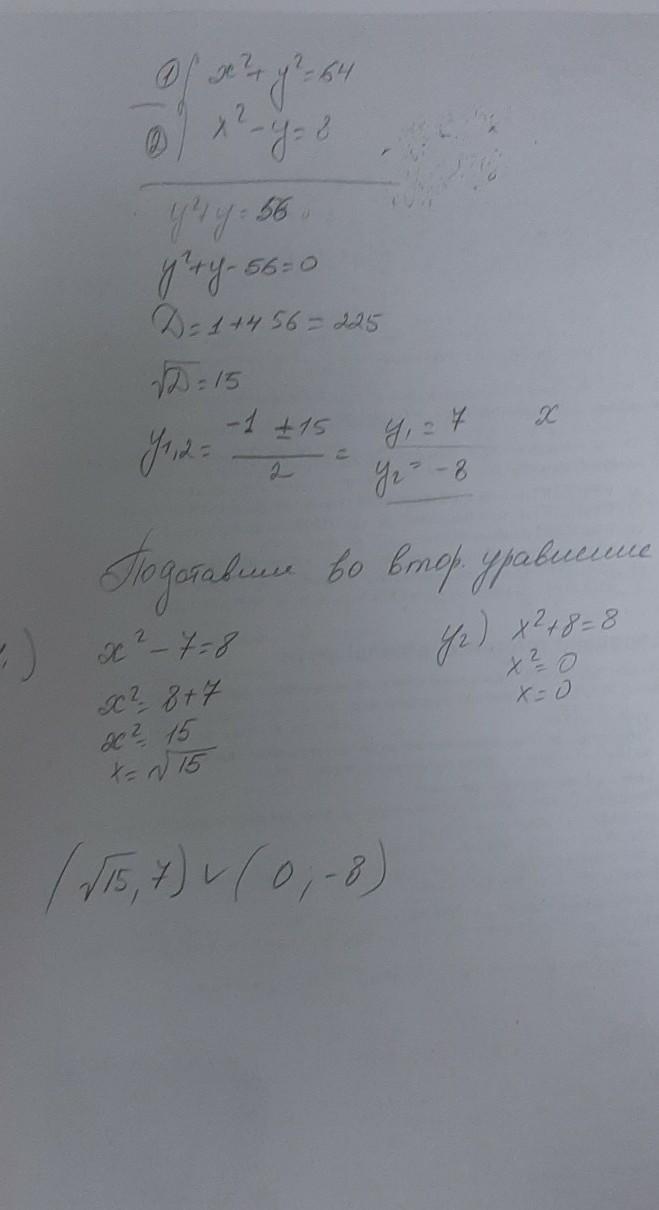 ① { x² + y² = 64
② x² - y = 8
y² + y = 56
y² + y - 56 = 0
D = 1 + 4 56 = 225
√D = 15
y₁,₂ = (-1 ± 15)/2 = y₁ = 7 x
y₂ = -8
Подставим во втор. уравнение
) x² - 7 = 8
x² = 8 + 7
x² = 15
x = √15
y₂) x² + 8 = 8
x² = 0
x = 0
(√15, 7) ∨ (0; -8)